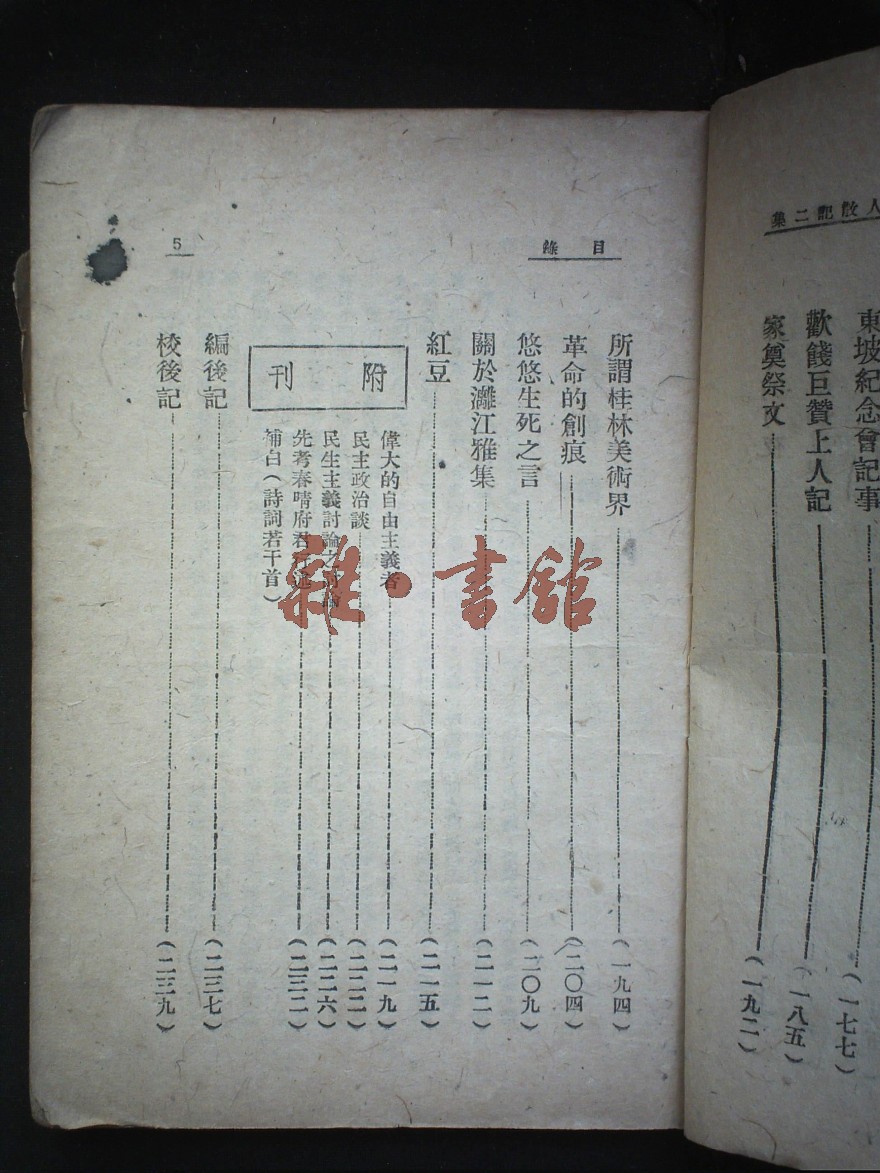 人散記二集
東坡紀念會記事……(一七七)
歡餞巨贊上人記……(一八五)
家奠祭文……(一九二)
目錄
5
所謂桂林美術界……(一九四)
革命的創痕……(二〇四)
悠悠生死之言……(二〇九)
關於灕江雅集……(二一二)
紅豆……(二一五)
附刊
偉大的自由主義者……(二一九)
民主政治談……(二二二)
民生主義討論之……(二二六)
先考春晴府君行述……(二三二)
補白(詩詞若干首)
編後記……(二三七)
校後記……(二三九)
雜·書館